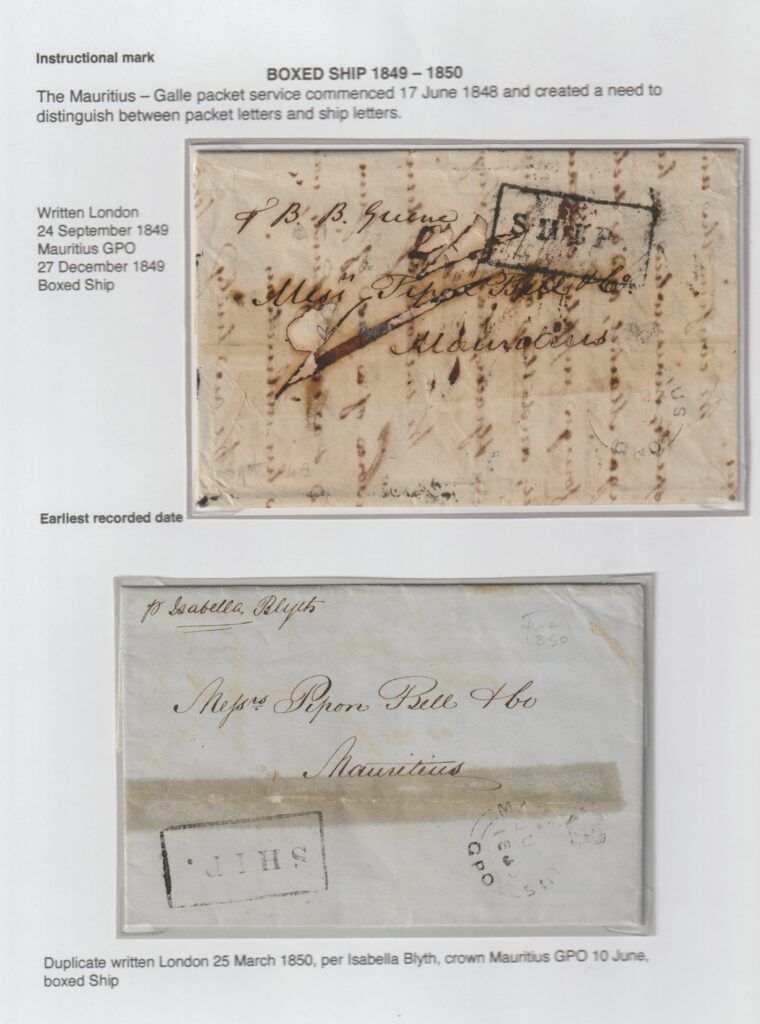 Instructional mark
BOXED SHIP 1849 – 1850
The Mauritius – Galle packet service commenced 17 June 1848 and created a need to
distinguish between packet letters and ship letters.
Written London
24 September 1849
Mauritius GPO
27 December 1849
Boxed Ship
B. B. Greene
SHIP.
Messrs Pipon Bell & Co
Mauritius
IUS
GPO
Earliest recorded date
p Isabella Blyth
June
1850
Messrs Pipon Bell & Co
Mauritius
SHIP.
MA
GPO
US
Duplicate written London 25 March 1850, per Isabella Blyth, crown Mauritius GPO 10 June,
boxed Ship